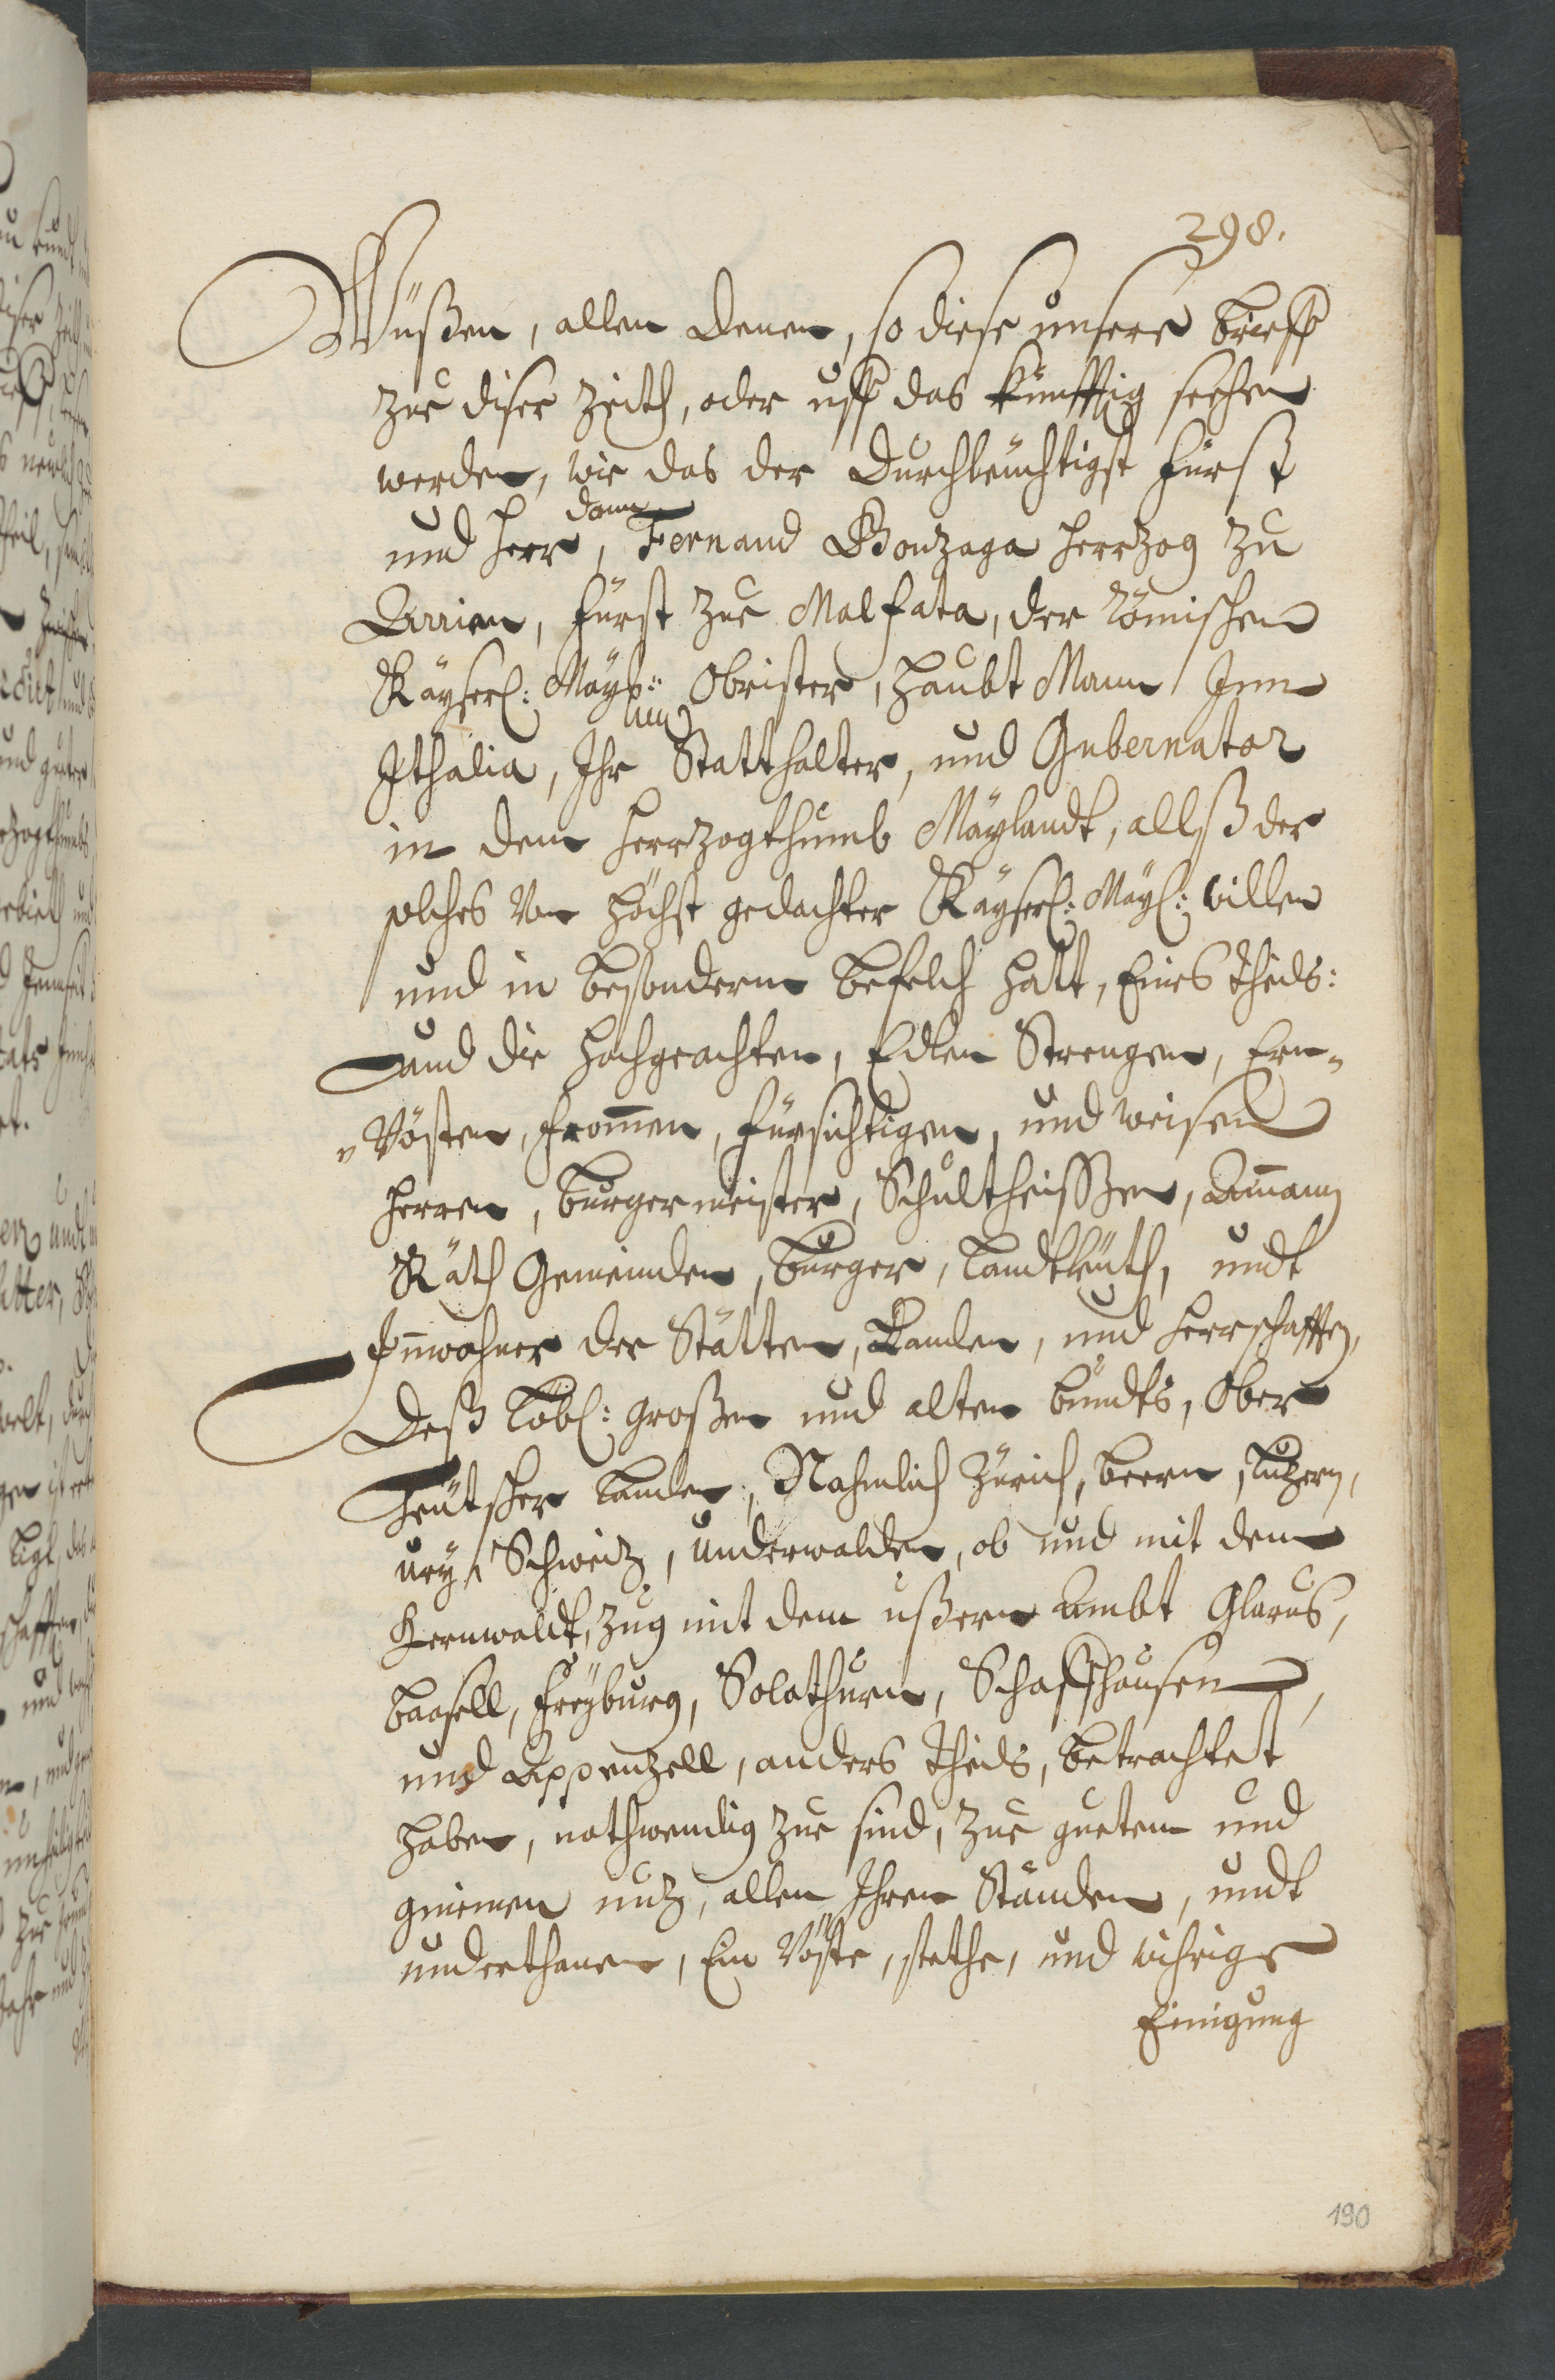 298.
Wüßen, allen denen, so diese unsere brieff
zue diser Zeith, oder uff das künfftig sechen
werden, wie das der Durchleüchtigst Fürst
und Herr, don Fernand Gonzaga Herrzog zu
Arrian, Fürst zue Malfata, der Römischen
Kayserl: Mayt:: Obrister, Haubt Mann Inn
Ithalia, Ihr Statthalter, und Gubernator
in dem Herrzogthumb Mäylandt, allß der
solches von höchst gedachter Kayserl: Mayl: willen
und in besonderm befelch hatt, Eines theils:
und die Hochgeachten, Edlen Strengen, Ern„
„Vösten, Frommen, Fürsichtigen, und weisen
Herren, burgermeister, Schultheissen, Ammann
Räth Gemeinden, burger, Landtleüth, undt
Innwohner der Stätten, Landen, und Herrschafften,
Deß Lobl: großen und alten bundts, Ober
Teütscher Landen, Nahmlich Zürich, beern, Luzern,
ury, Schweitz, Underwalden, ob und mit dem
Kernwaldt, Zug mit dem ußeren Ambt Glarus,
baasell, Freyburg, Solothurn, Schaffhausen,
und Appenzell, anders theils, betrachtet
haben, nothwendig zue sind, zue gueten und
gmeinen nutz, allen Ihren Ständen, undt
underthanen, Ein Vöste, stethe, und wihrige
Einigung
190